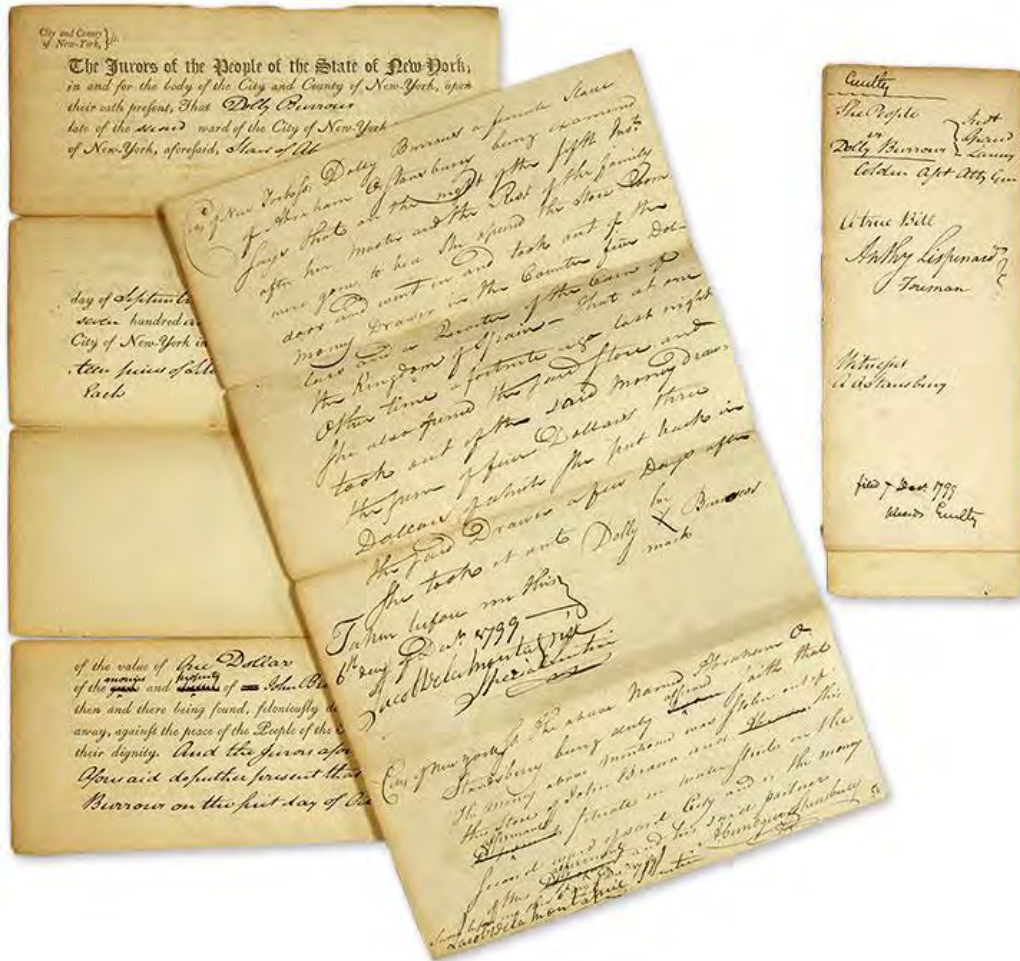 City and County
of New-York,
The Jurors of the People of the State of New-York,
in and for the body of the City and County of New-York, upon
their oath present, That Dolly Burrows
late of the second ward of the City of New-York
of New-York, aforesaid, Slave of Ab
day of Septemb
seven hundred
City of New-York in
teen pieces of
Each
of the value of One Dollar
monies property
of the and of John Br
then and there being found, feloniously d
away, against the peace of the People of the
their dignity. And the Jurors afor
aforesaid do further present that
Burrows on the first day of
City of New York ss. Dolly Burrows a female Slave
of Abraham O Stansbury being examined
says that on the night of the fifth Inst.
after her master and the Rest of the family
were gone to bed She opened the Store Room
door and went in and took out of the
money Drawer in the Counter four Dol-
lars and a Quarter of the Coin of
the Kingdom of Spain - That at one
Other time a fortnite ago last night
She also opened the said Store and
took out of the said money draw-
the sum of four Dollars three
Dollars of which She put back in
the said Drawer a few Days after
She took it out
her
Dolly X Burrows
mark
Taken before me this
6th day of Decr. 1799
Jacob DeLamontagnie
Special Justice
City of New York ss The above Named Abraham O
Stansbury being duly affirmed saith that
the money above mentioned was stolen out of
the Store of John Brown and this
Affirmant, situate in water Street in the
Second ward of said City and is the money
of this Affirmant and his said partner
Abraham O Stansbury
Jacob DeLamontagnie
Guilty
The People
vs
Dolly Burrows
Indt
Grand
Larceny
Colden Asst Atty Gen
A true Bill
Anthy Lispenard
Foreman
Witnesses
A O Stansbury
filed 7 Decr. 1799
pleads Guilty